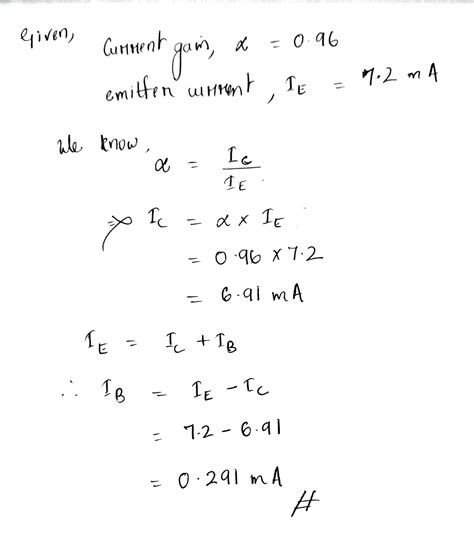 Given, Current gain, α = 0.96
emitter current, I_E = 7.2 mA
We know,
α = I_C / I_E
⇒ I_C = α × I_E
= 0.96 × 7.2
= 6.91 mA
I_E = I_C + I_B
∴ I_B = I_E - I_C
= 7.2 - 6.91
= 0.291 mA
#